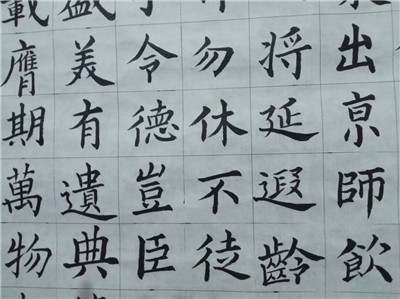 出亰師飲
将延遐齡
勿休不徒
令德豈臣
盛美有遺典
載膺期萬物